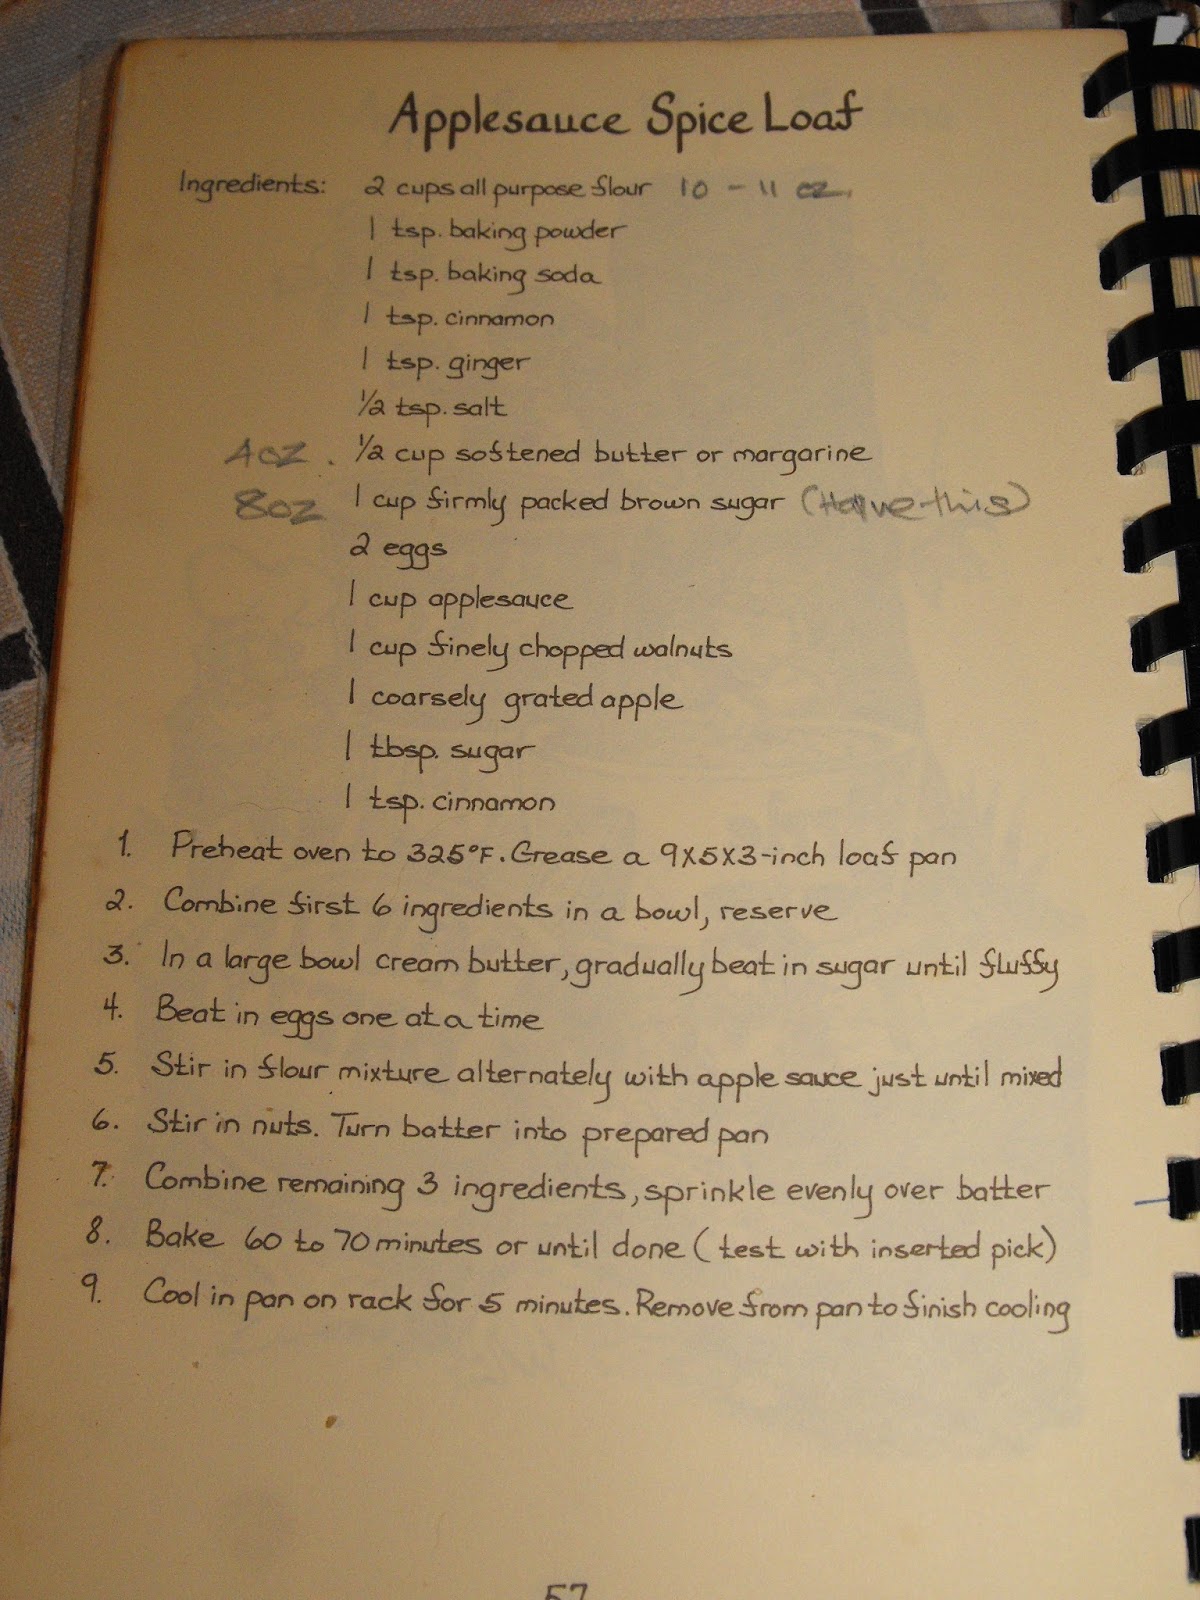 Applesauce Spice Loaf
Ingredients: 2 cups all purpose flour 10 - 11 oz.
1 tsp. baking powder
1 tsp. baking soda
1 tsp. cinnamon
1 tsp. ginger
1/2 tsp. salt
4oz. 1/2 cup softened butter or margarine
8oz 1 cup firmly packed brown sugar (Halve this)
2 eggs
1 cup applesauce
1 cup finely chopped walnuts
1 coarsely grated apple
1 tbsp. sugar
1 tsp. cinnamon
1. Preheat oven to 325°F. Grease a 9X5X3-inch loaf pan
2. Combine first 6 ingredients in a bowl, reserve
3. In a large bowl cream butter, gradually beat in sugar until fluffy
4. Beat in eggs one at a time
5. Stir in flour mixture alternately with apple sauce just until mixed
6. Stir in nuts. Turn batter into prepared pan
7. Combine remaining 3 ingredients, sprinkle evenly over batter
8. Bake 60 to 70 minutes or until done (test with inserted pick)
9. Cool in pan on rack for 5 minutes. Remove from pan to finish cooling
57